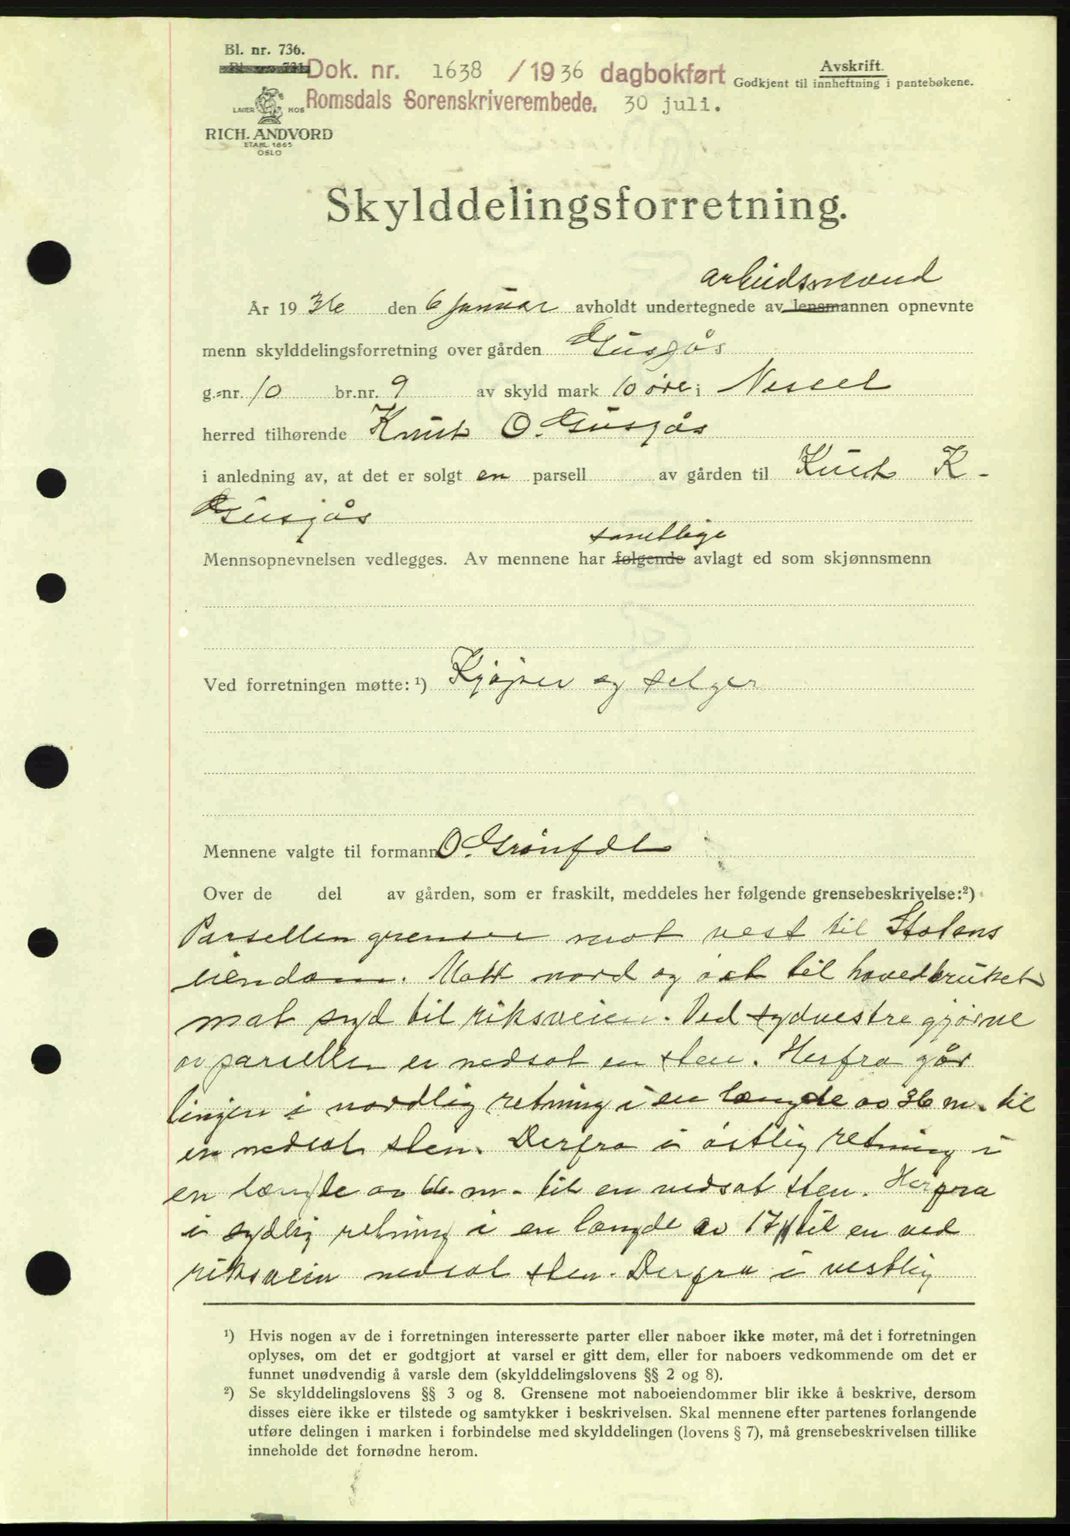 Bl. nr. 736.
Dok. nr. 1638 / 1936 dagbokført
Avskrift.
Godkjent til innheftning i pantebøkene.
Romsdals Sorenskriverembede. 30 juli.
LAGER HOS
RICH. ANDVORD
ETABL. 1865
OSLO
Skylddelingsforretning.
arbeidsmand
År 1936 den 6 januar avholdt undertegnede av lensmannen opnevnte
menn skylddelingsforretning over gården Gusjås
g.-nr. 10 br.nr. 9 av skyld mark 10 øre i Nesset
herred tilhørende Knut O. Gusjås
i anledning av, at det er solgt en parsell av gården til Knut K.
Gusjås
samtlige
Mennsopnevnelsen vedlegges. Av mennene har følgende avlagt ed som skjønnsmenn
Ved forretningen møtte: ¹) Kjøper og selger
Mennene valgte til formann O. Grønfdl
Over de del av gården, som er fraskilt, meddeles her følgende grensebeskrivelse:²)
Parsellen grenser mot vest til Stolens
eiendom. Mott nord og øst til hovedbruket
mot syd til riksveien. Ved sydvestre gjørne
av parsellen er nedsat en sten. Herfra går
linjen i nordlig retning i en længde av 36 m. til
en nedsat sten. Derfra i østlig retning i
en længde av m. til en nedsat sten. Herfra
i sydlig retning i en længde av 17 til en ved
riksveien nedsat sten. Derfra i vestlig
¹) Hvis nogen av de i forretningen interesserte parter eller naboer ikke møter, må det i forretningen
oplyses, om det er godtgjort at varsel er gitt dem, eller for naboers vedkommende om det er
funnet unødvendig å varsle dem (skylddelingslovens §§ 2 og 8).
²) Se skylddelingslovens §§ 3 og 8. Grensene mot naboeiendommer blir ikke å beskrive, dersom
disses eiere ikke er tilstede og samtykker i beskrivelsen. Skal mennene efter partenes forlangende
utføre delingen i marken i forbindelse med skylddelingen (lovens § 7), må grensebeskrivelsen tillike
inneholde det fornødne herom.